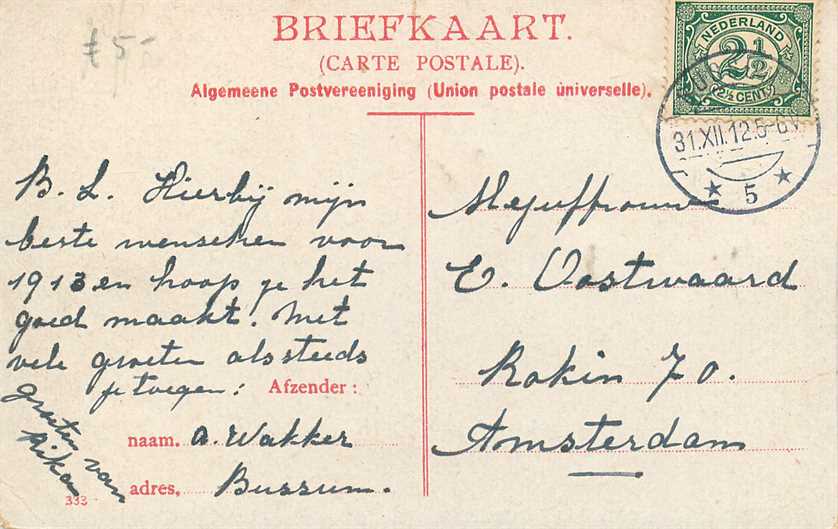 £ 5-
BRIEFKAART.
(CARTE POSTALE).
Algemeene Postvereeniging (Union postale universelle).
NEDERLAND
2½
(2½ CENT)
31.XII.12.5-6V
5
B. L. Hierbij mijn
beste menschen voor
1913 en hoop je het
goed maakt. Met
vele groeten als steeds
je toegen:
Afzender:
naam. A. Wakker
adres. Bussum.
333
groeten van
Rika
Mejuffrouw
E. Oostwaard
Rokin 70.
Amsterdam